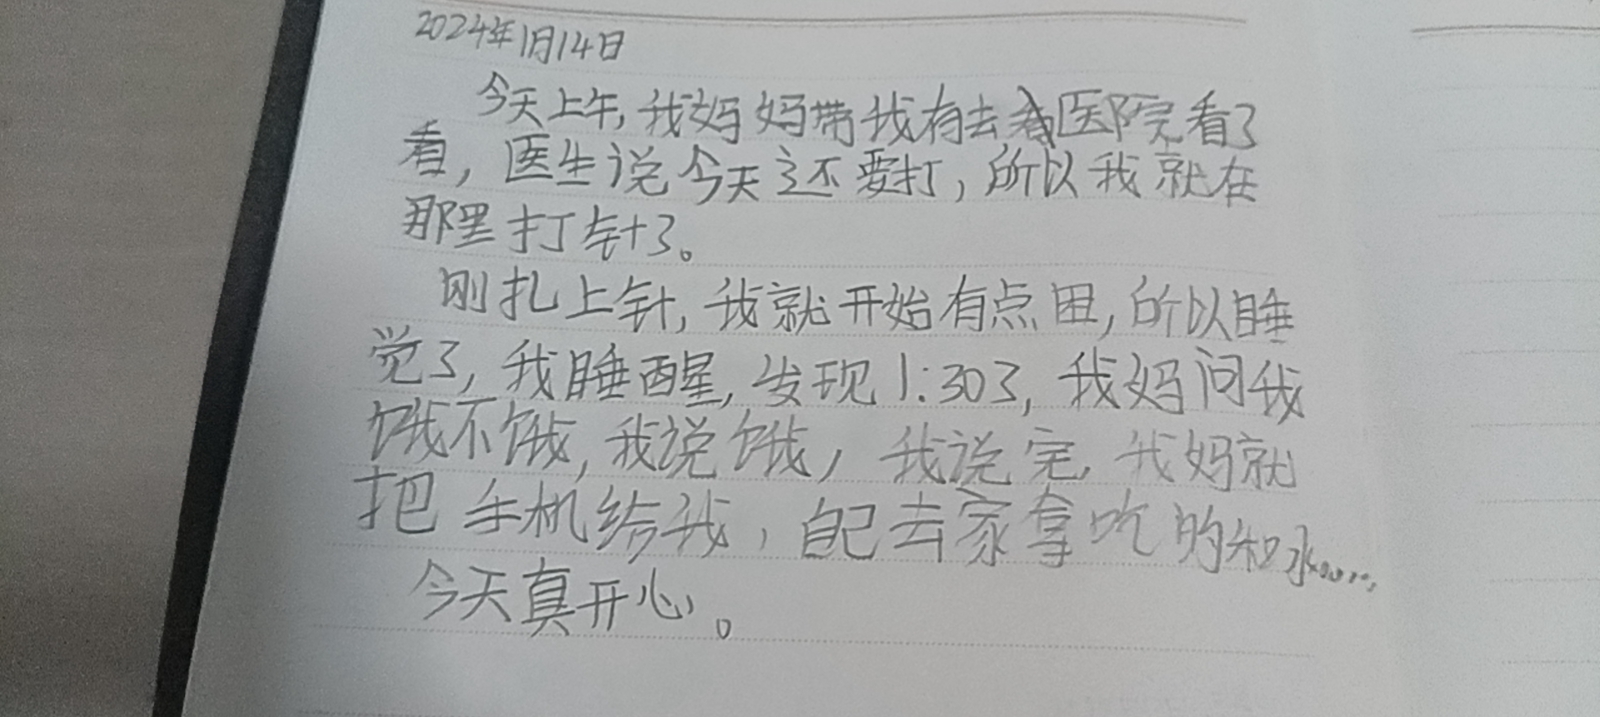 2024年1月14日
今天上午,我妈妈带我有去医院看了
看,医生说今天还要打,所以我就在
那里打针了。
刚扎上针,我就开始有点困,所以睡
觉了,我睡醒,发现1:30了,我妈问我
饿不饿,我说饿,我说完,我妈就
把手机给我,自己去家拿吃的和水......
今天真开心。